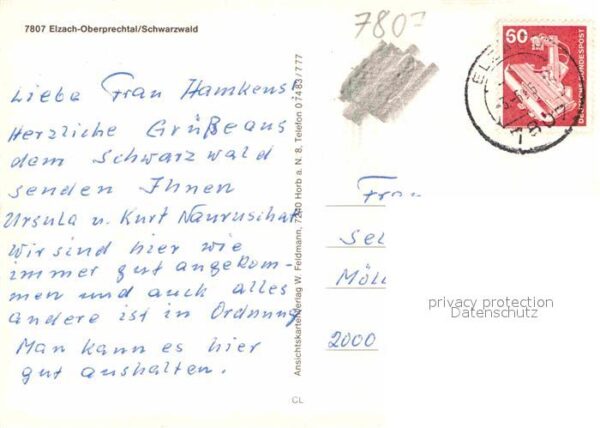 7807 Elzach-Oberprechtal/Schwarzwald
Liebe Frau Hamkens!
Herzliche Grüße aus
dem Schwarzwald
senden Ihnen
Ursula u. Kurt Nauruschat
Wir sind hier wie
immer gut angekom-
men und auch alles
andere ist in Ordnung
Man kann es hier
gut aushalten.
Ansichtskartenverlag W. Feldmann, 7240 Horb a. N. 8, Telefon 07483/777
CL
7807
60
DEUTSCHE BUNDESPOST
7807
Frau
Sel
Möl
2000
privacy protection
Datenschutz